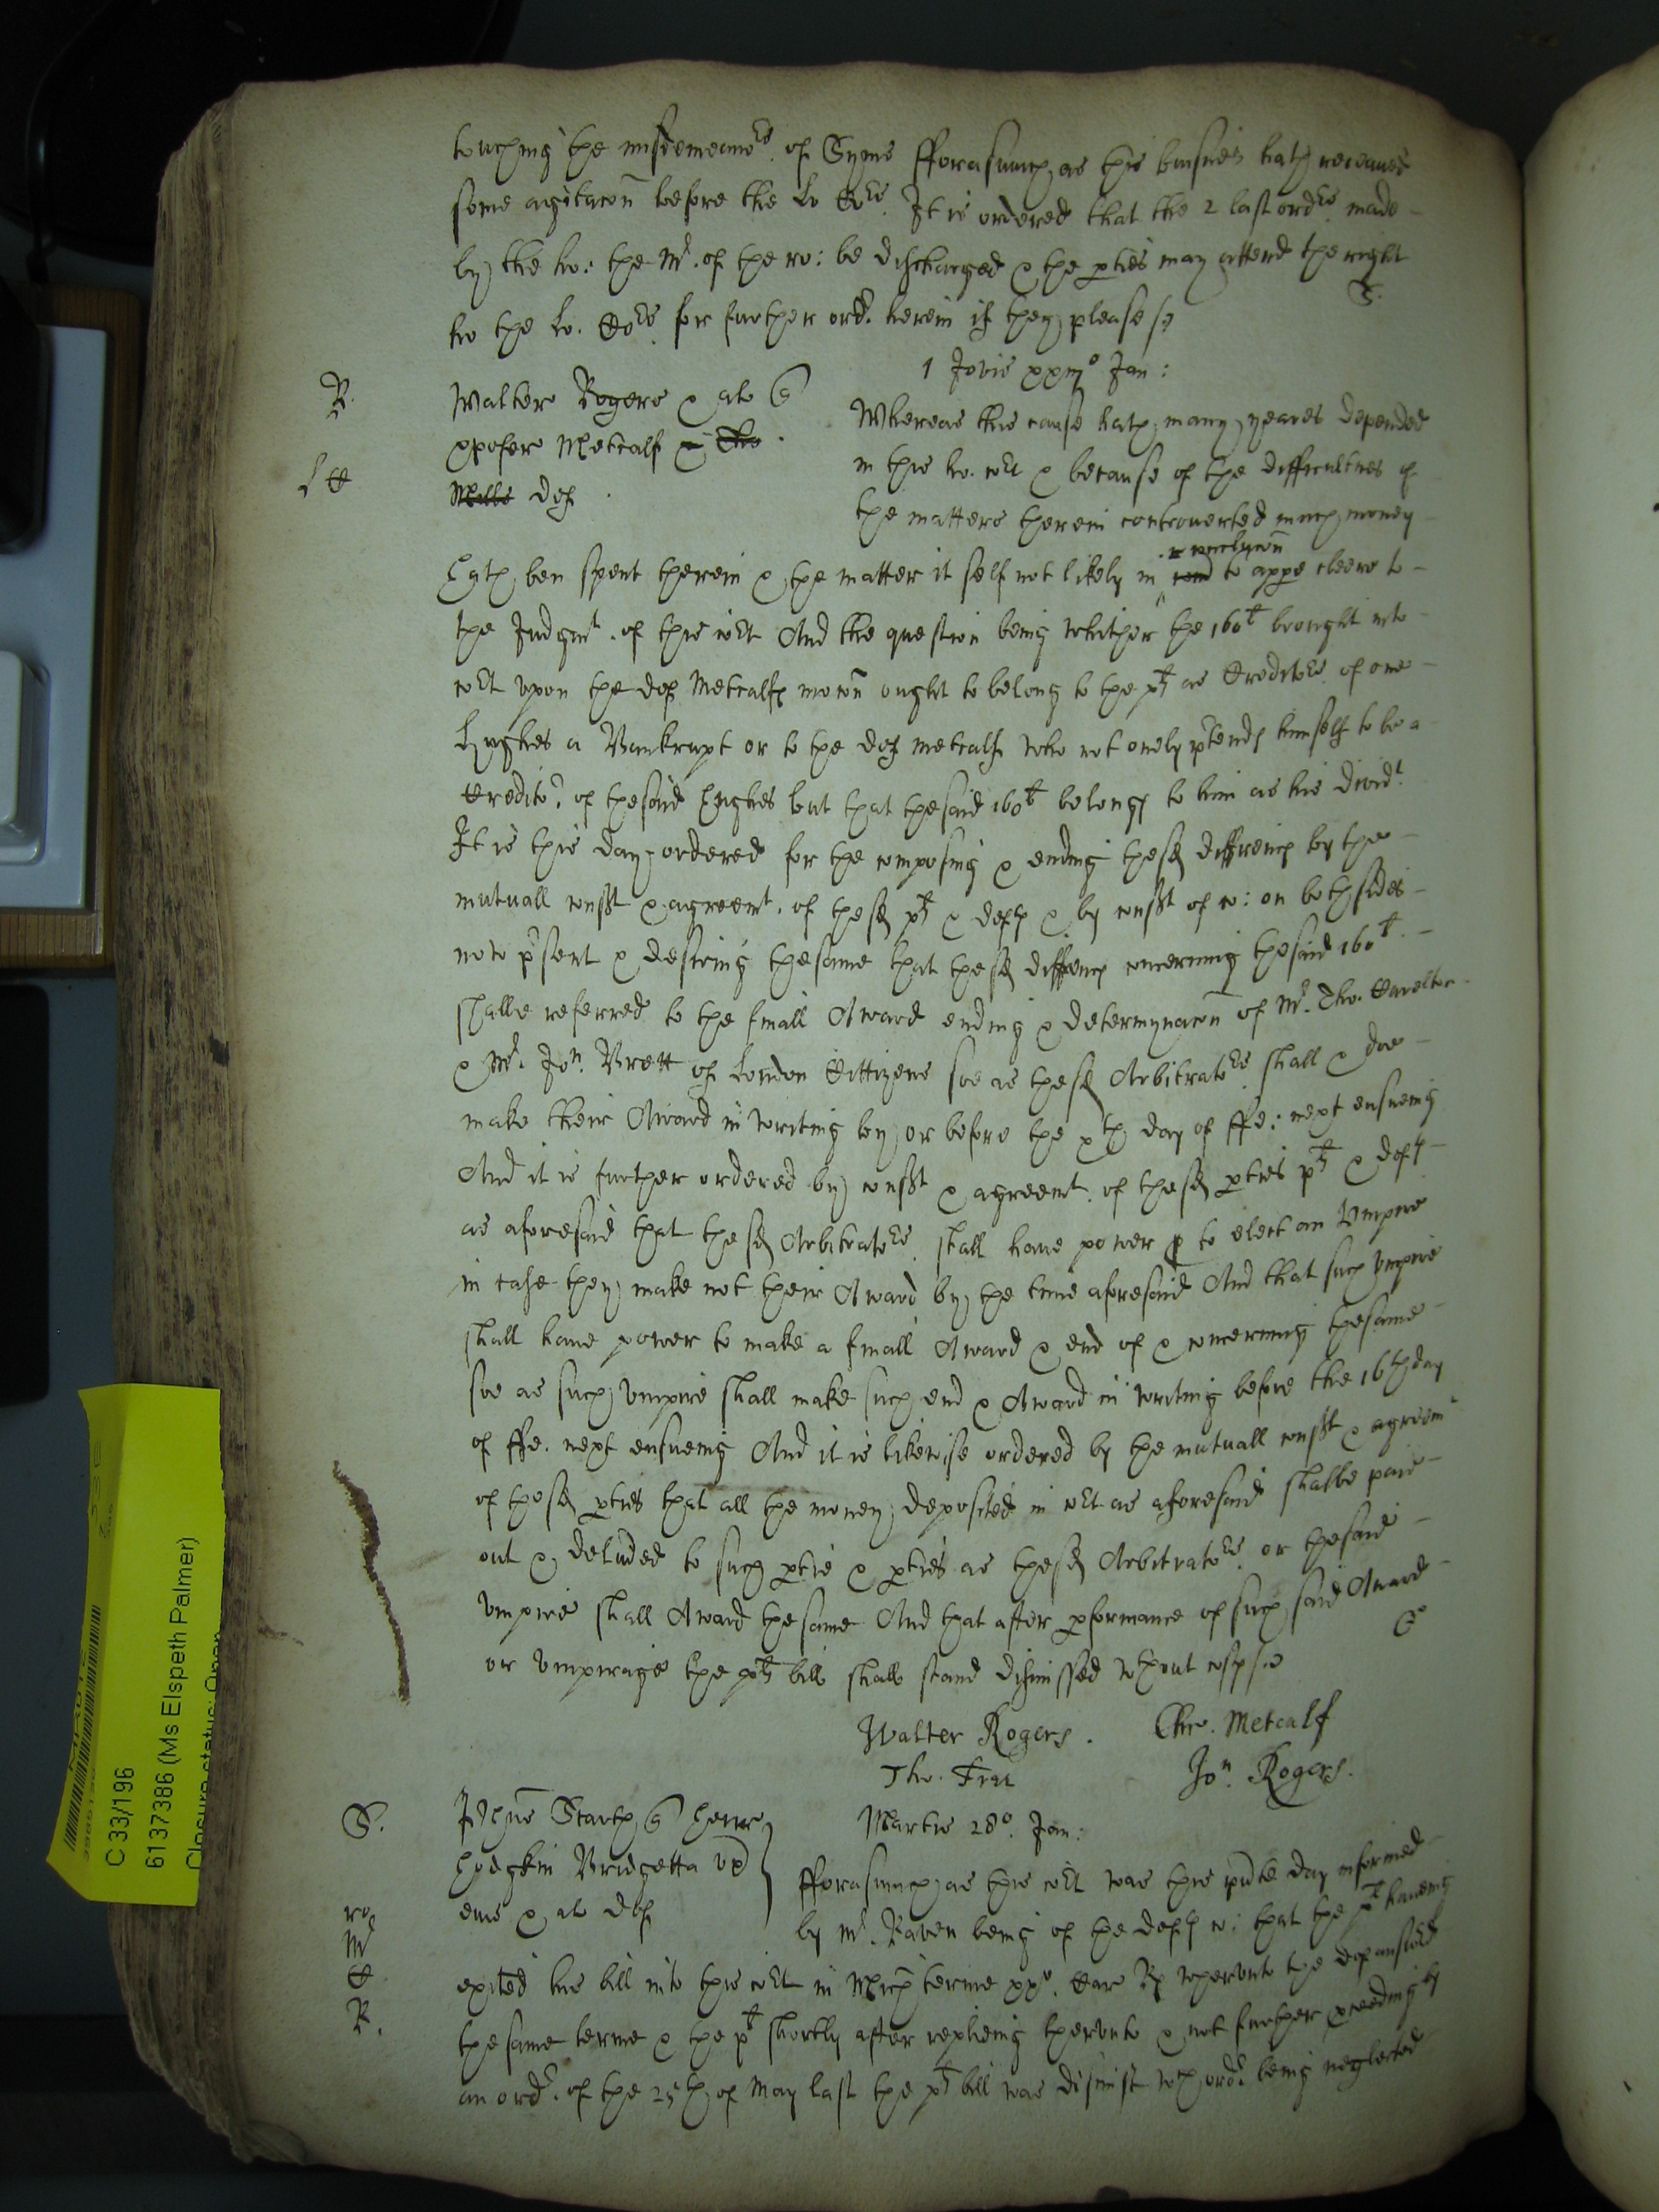 touching the misdemeano.rs of Syms fforasmuch as this busines hath receaued
some agitacon before the lo Co.rs It is ordered that the 2 last ord.rs made
by the ho: the M.r of the ro: be discharged & the pties may attend the right
ho the lo. Co.rs for further ord.r herein if they please
1 Jovis Jan:
R.
Walter Rogers & al
Metcalf & Tho
Mills def
Whereas this cause hath many yeares depended
in this ho. co.rt & because of the difficulties of
the matters therein controuerted much money
hath ben spent therein & the matter it self not likely in conclusion to appe cleere to
the Judgm.t of this co.rt And the question being whither the 160 li brought into
co.rt vpon the def Metcalfs mocon ought to belong to the pl.ts as Credito.rs of one
Hughes a Bankrupt or to the def metcalf who not onely p.rtends himself to be a
Credito.r of thesaid Hughes but that thesaid 160 li belongs to him as his divid.t
It is this day ordered for the composing & ending thes differencs by the
mutuall const & agreem.t of thes pl.ts & defts & by const of co: on both sides
now p.rsent & desiring thesame that thes differencs concerning thesaid 160 li
shalbe referred to the finall Award ending & determynacon of M.r Tho.
& M.r Jo.n Brett of London Cittizens soe as thes Arbitrato.rs shall & doe
make their Award in writing by or before the xth day of ffe: next ensueing
And it is further ordered by const & agreem.t of thes pties pl.ts & defts
as aforesaid that thes Arbitrato.rs shall haue power to elect an Vmpire
in case they make not their Award by the time aforesaid And that such Vmpire
shall haue power to make a finall Award & end of & concerning thesame
soe as such Vmpire shall make such end & Award in writing before the 16th day
of ffe. next ensueing And it is likewise ordered by the mutuall const & agreem.t
of thes pties that all the money deposited in co.rt as aforesaid shalbe paid
out & deliued to such ptie & pties as thes Arbitrato.rs or thesaid
Vmpire shall Award thesame And that after pformance of such said Award
or Vmpirage the pl.ts bill shall stand dismissed w.thout costs
Walter Rogers. Chr. Metcalf
Tho. Jo.n Rogers.
S.
Hodgkin Bridgetta vx
eius & al def
Martis 28.o Jan:
fforasmuch as this co.rt was this p.rnte day informed
by M.r Raven being of the defts co: that the pl.t haueing
ro
M.r
C
R.
exited his bill into this co.rt in Mich terme xx.o Car R whervnto the def answered
thesame terme & the pl.t shortly after replieing thervnto & not further pceeding by
an ord.r of the 25th of May last the pl.ts bill was dismist w.ch ord.r being neglected
C 33/196
6137386 (Ms Elspeth Palmer)
Closure status: Open